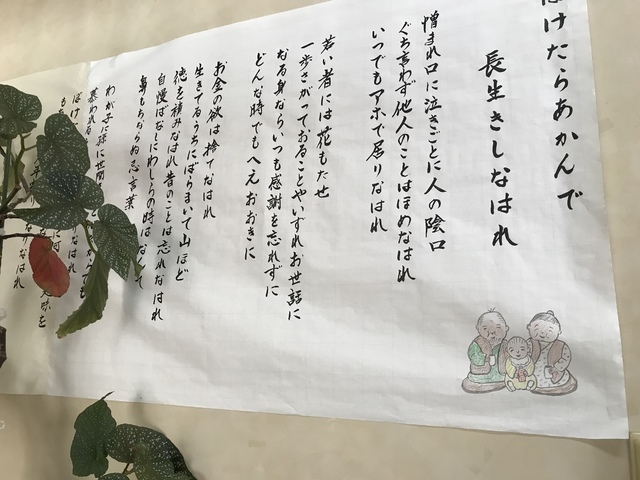 ぼけたらあかんで
長生きしなはれ
憎まれ口に泣きごとに人の陰口
ぐち言わず他人のことはほめなはれ
いつでもアホで居りなはれ
若い者には花もたせ
一歩さがっておることやいずれお世話に
なる身ならいつも感謝を忘れずに
どんな時でもへえおおきに
お金の欲は捨てなはれ
生きてるうちにばらまいて山ほど
徳を積みなはれ昔のことは忘れなはれ
自慢ばなしにわしらの時はなんて
鼻もちならぬ忌言葉
わが子に孫に世間
慕われる なはれ
ぼけ
も
なはれ